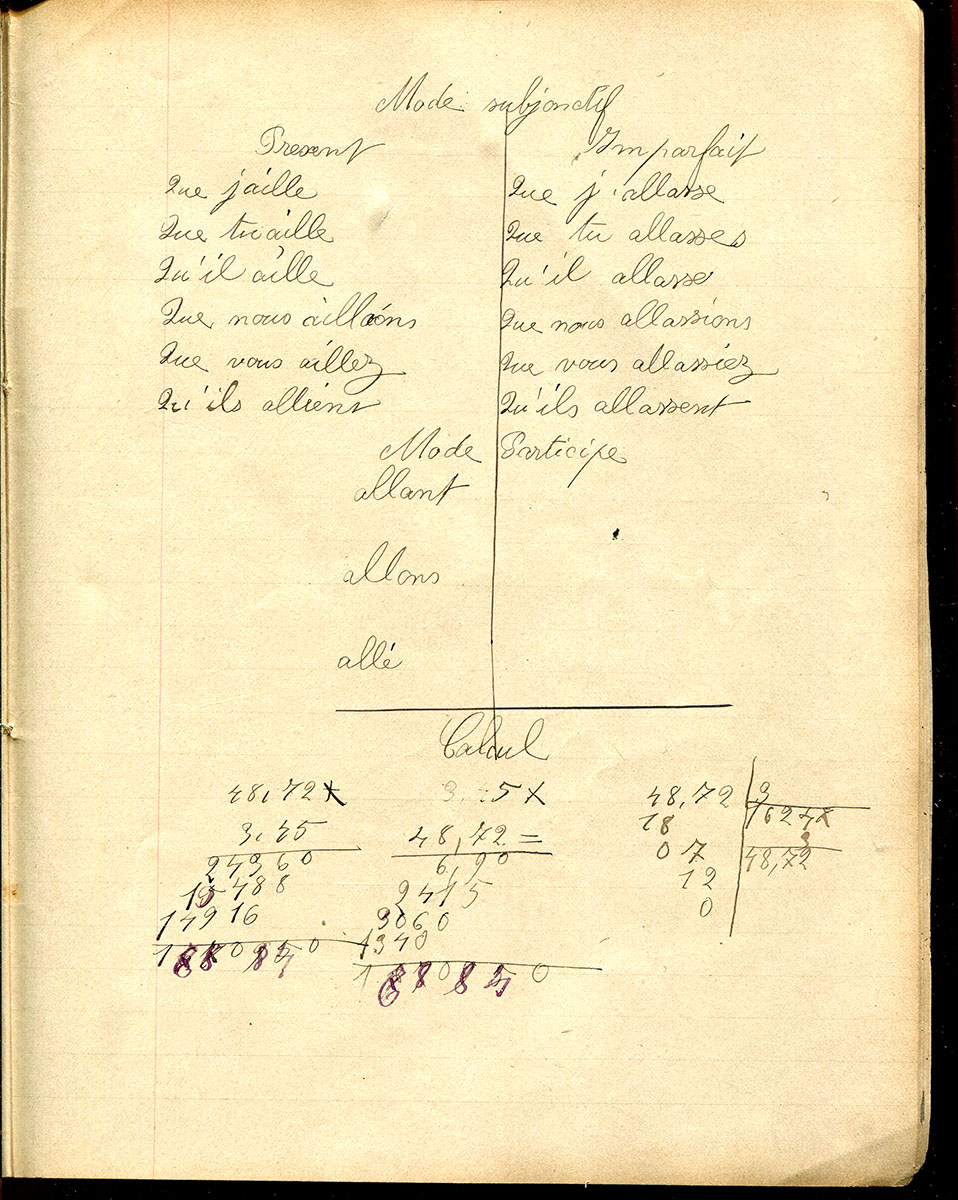 Mode subjonctif
Present
Que j'aille
Que tu aille
Qu'il aille
Que nous aillons
Que vous aillez
Qu'ils alliens
Imparfait
Que j'allasse
Que tu allasses
Qu'il allasse
Que nous allassions
Que vous allassiez
Qu'ils allassent
Mode Participe
allant
allons
allé
Calcul
48,72 x
3,45
24360
19488
14916
3,45 x
48,72 =
6,90
2415
48,72 3
18 1624 x
07 3
12 48,72
0